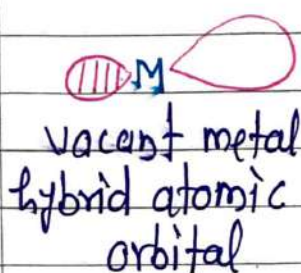 M
vacant metal
hybrid atomic
orbital